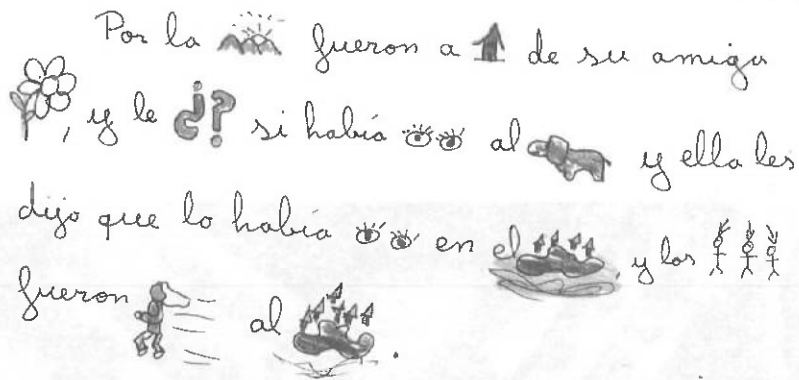 Por la fueron a de su amiga
, y le ¿? si había al y ella les
dijo que lo había en el , y los
fueron al .